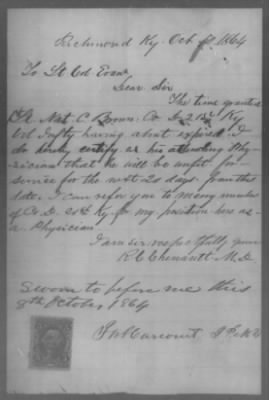 Richmond Ky. Oct 8th 1864
To Lt Col Evans
Dear Sir
The time granted
Nat C Brown Co D 20th Ky
Vol Infty having about expired I
do hereby certify as his attending Phy-
sician that he will be unfit for
service for the next 20 days from this
date. I can refer you to many members
of Co. D. 20th Ky for my position here as
a Physician
I am sir respectfully yours
R C Chenault M.D.
Sworn to before me this
8th October 1864